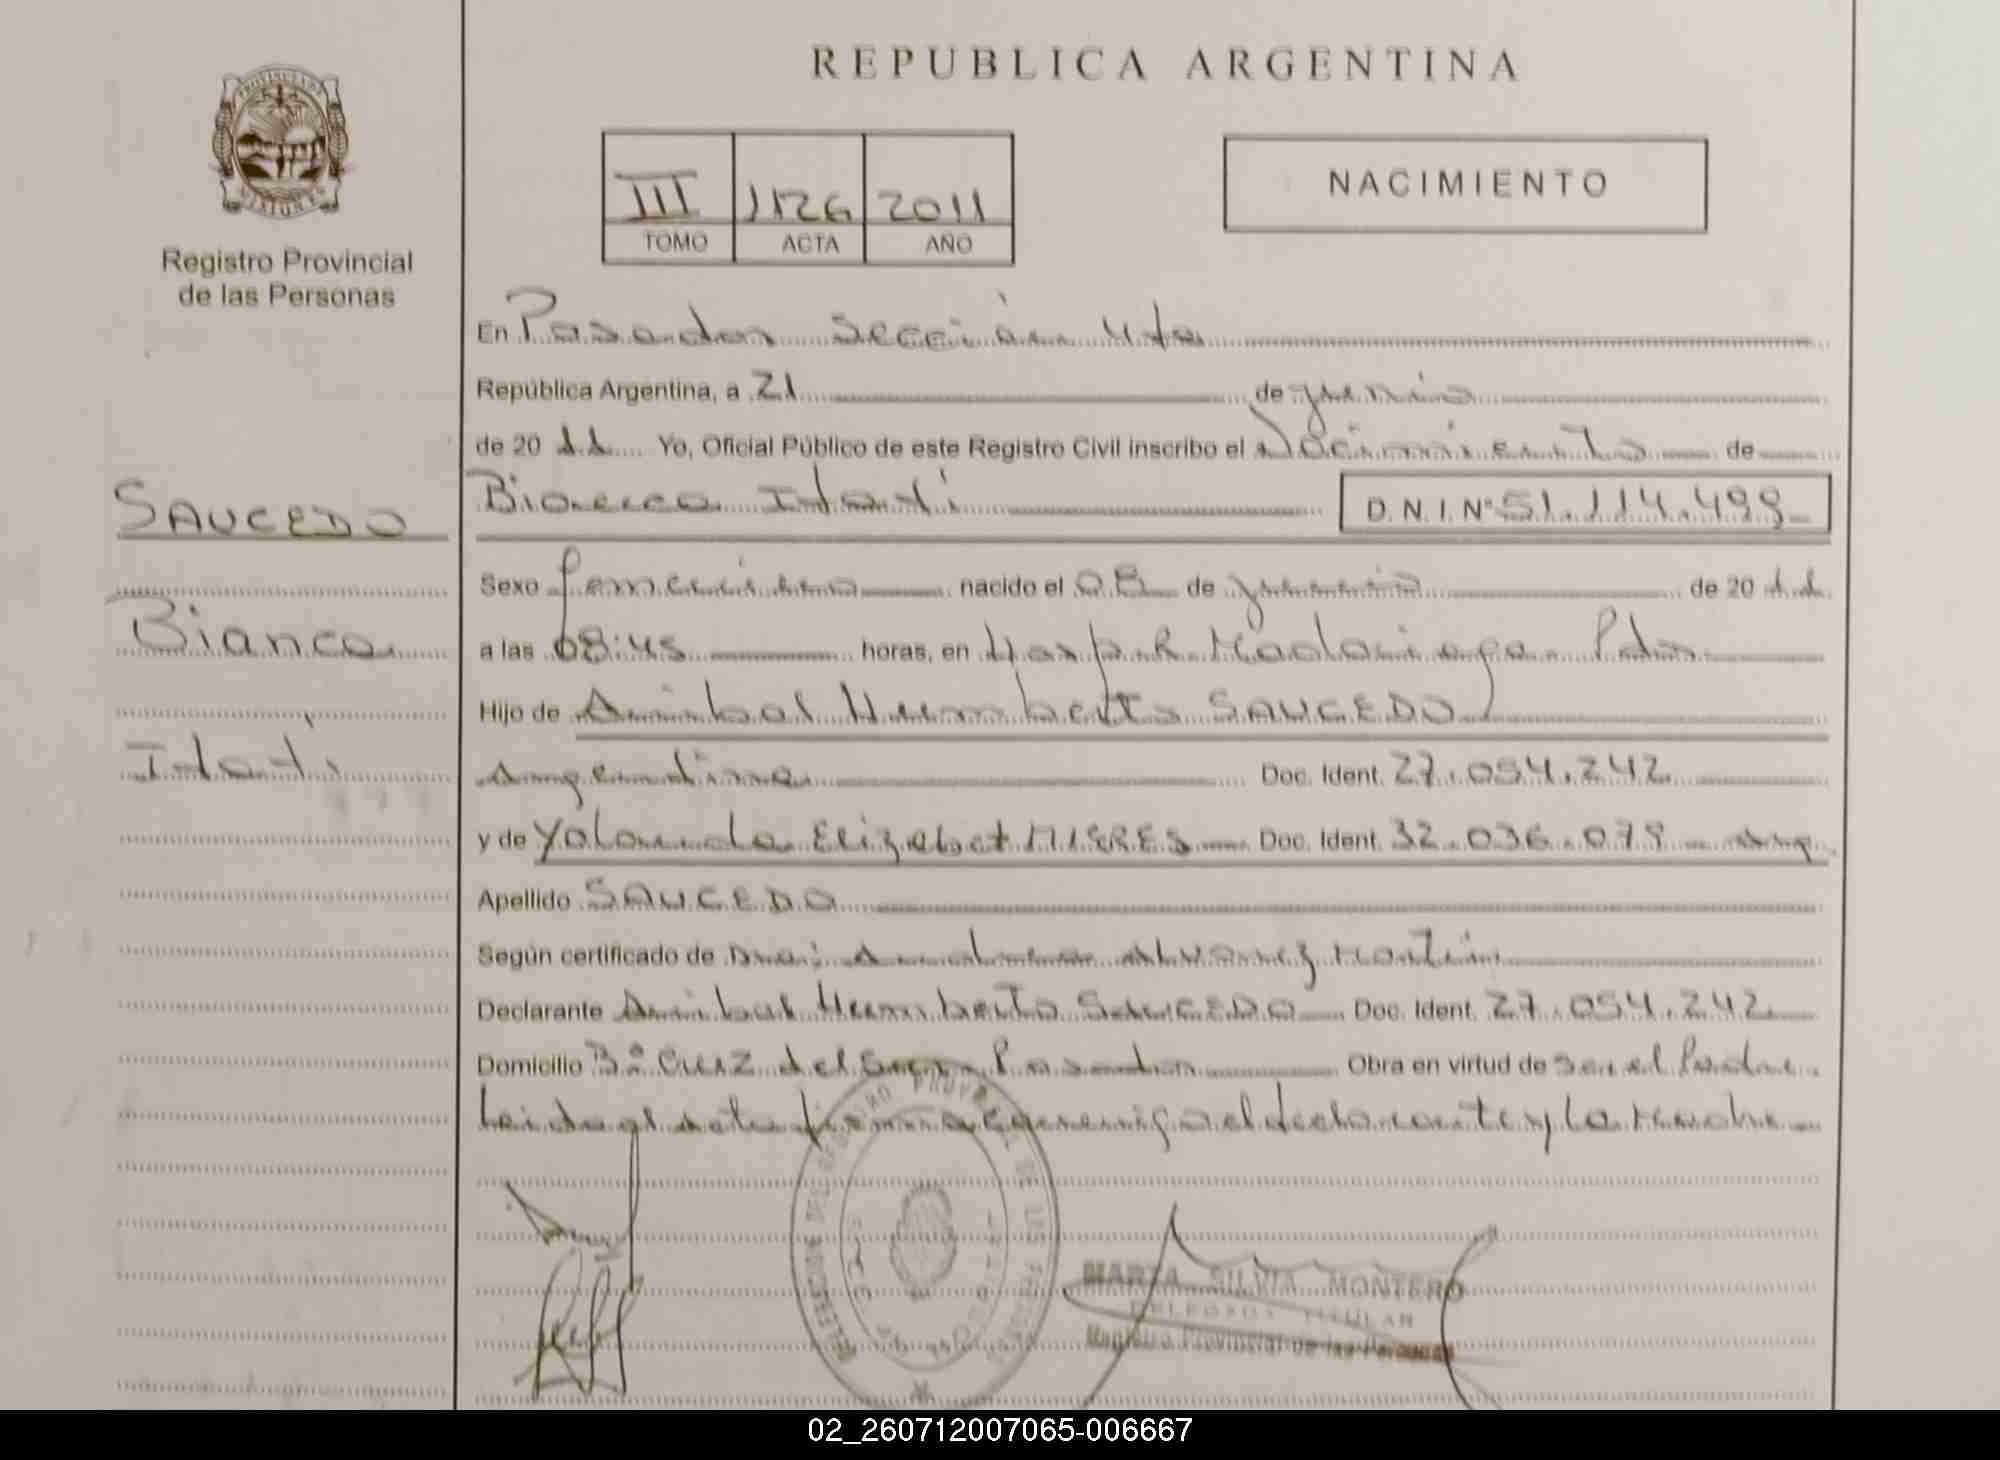 REPUBLICA ARGENTINA
PROVINCIA DE MISIONES
Registro Provincial
de las Personas
III 1126 2011
TOMO ACTA AÑO
NACIMIENTO
SAUCEDO
Bianca
Itatí
En Posadas sección 4ta
República Argentina, a 21 de junio
de 20 11 Yo, Oficial Público de este Registro Civil inscribo el Nacimiento de
Bianca Itatí D.N.I. Nº 51.114.499
Sexo femenino nacido el 08 de junio de 20 11
a las 08:45 horas, en Hosp. R. Madariaga Pdas
Hijo de Anibal Humberto SAUCEDO
Argentino Doc. Ident. 27.054.242
y de Yolanda Elizabet MIERES Doc. Ident. 32.036.079 Arg.
Apellido SAUCEDO
Según certificado de Dra. Alvarez Martín
Declarante Anibal Humberto SAUCEDO Doc. Ident. 27.054.242
Domicilio Bº Cruz del Sur Posadas Obra en virtud de ser el Padre
Leida el acta firma conmigo el declarante y la Madre
REGISTRO PROVINCIAL DE LAS PERSONAS
MARTA SILVIA MONTERO
DELEGADA TITULAR
Registro Provincial de las Personas
02_260712007065-006667